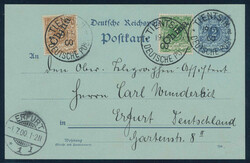 Deutsche Reichspost
Postkarte
TIENTSIN
DEUTSCHE POST
China
TIENTSIN
An den Ober-Telegraphen-Assistent
Herrn Carl Wunderlich
Erfurt Deutschland
Gartenstr. 8
ERFURT
1.7.00.1-2N